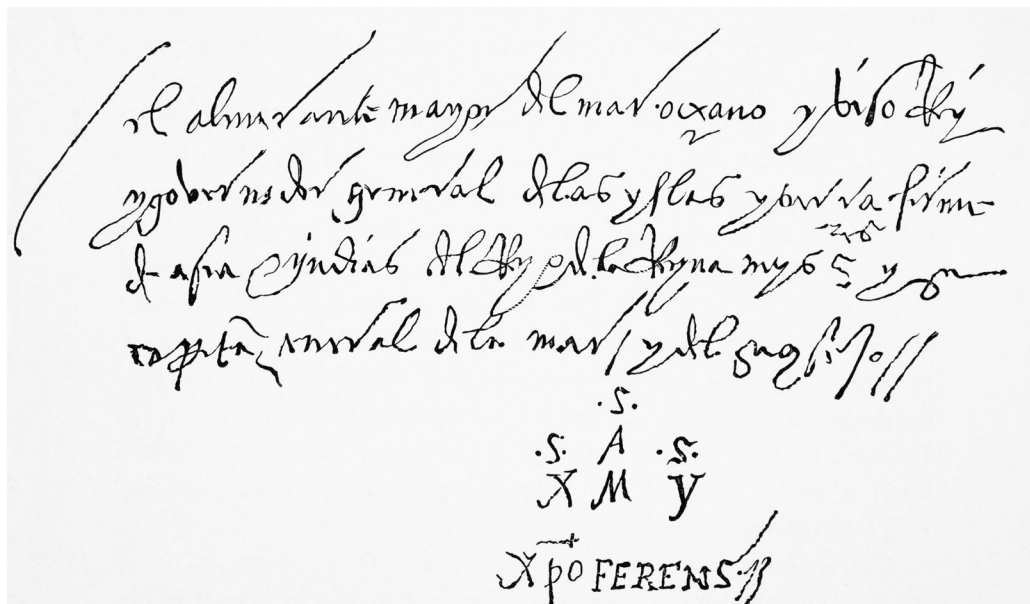 el almirante mayor del mar oceano y viso Rey
y governador general de las yslas y tierra firme
de asia e yndias del Rey e de la Reyna mys s^res y su
capitā general de la mar y del
.S.
.S. A .S.
X M Y
Xp̄o FERENS //